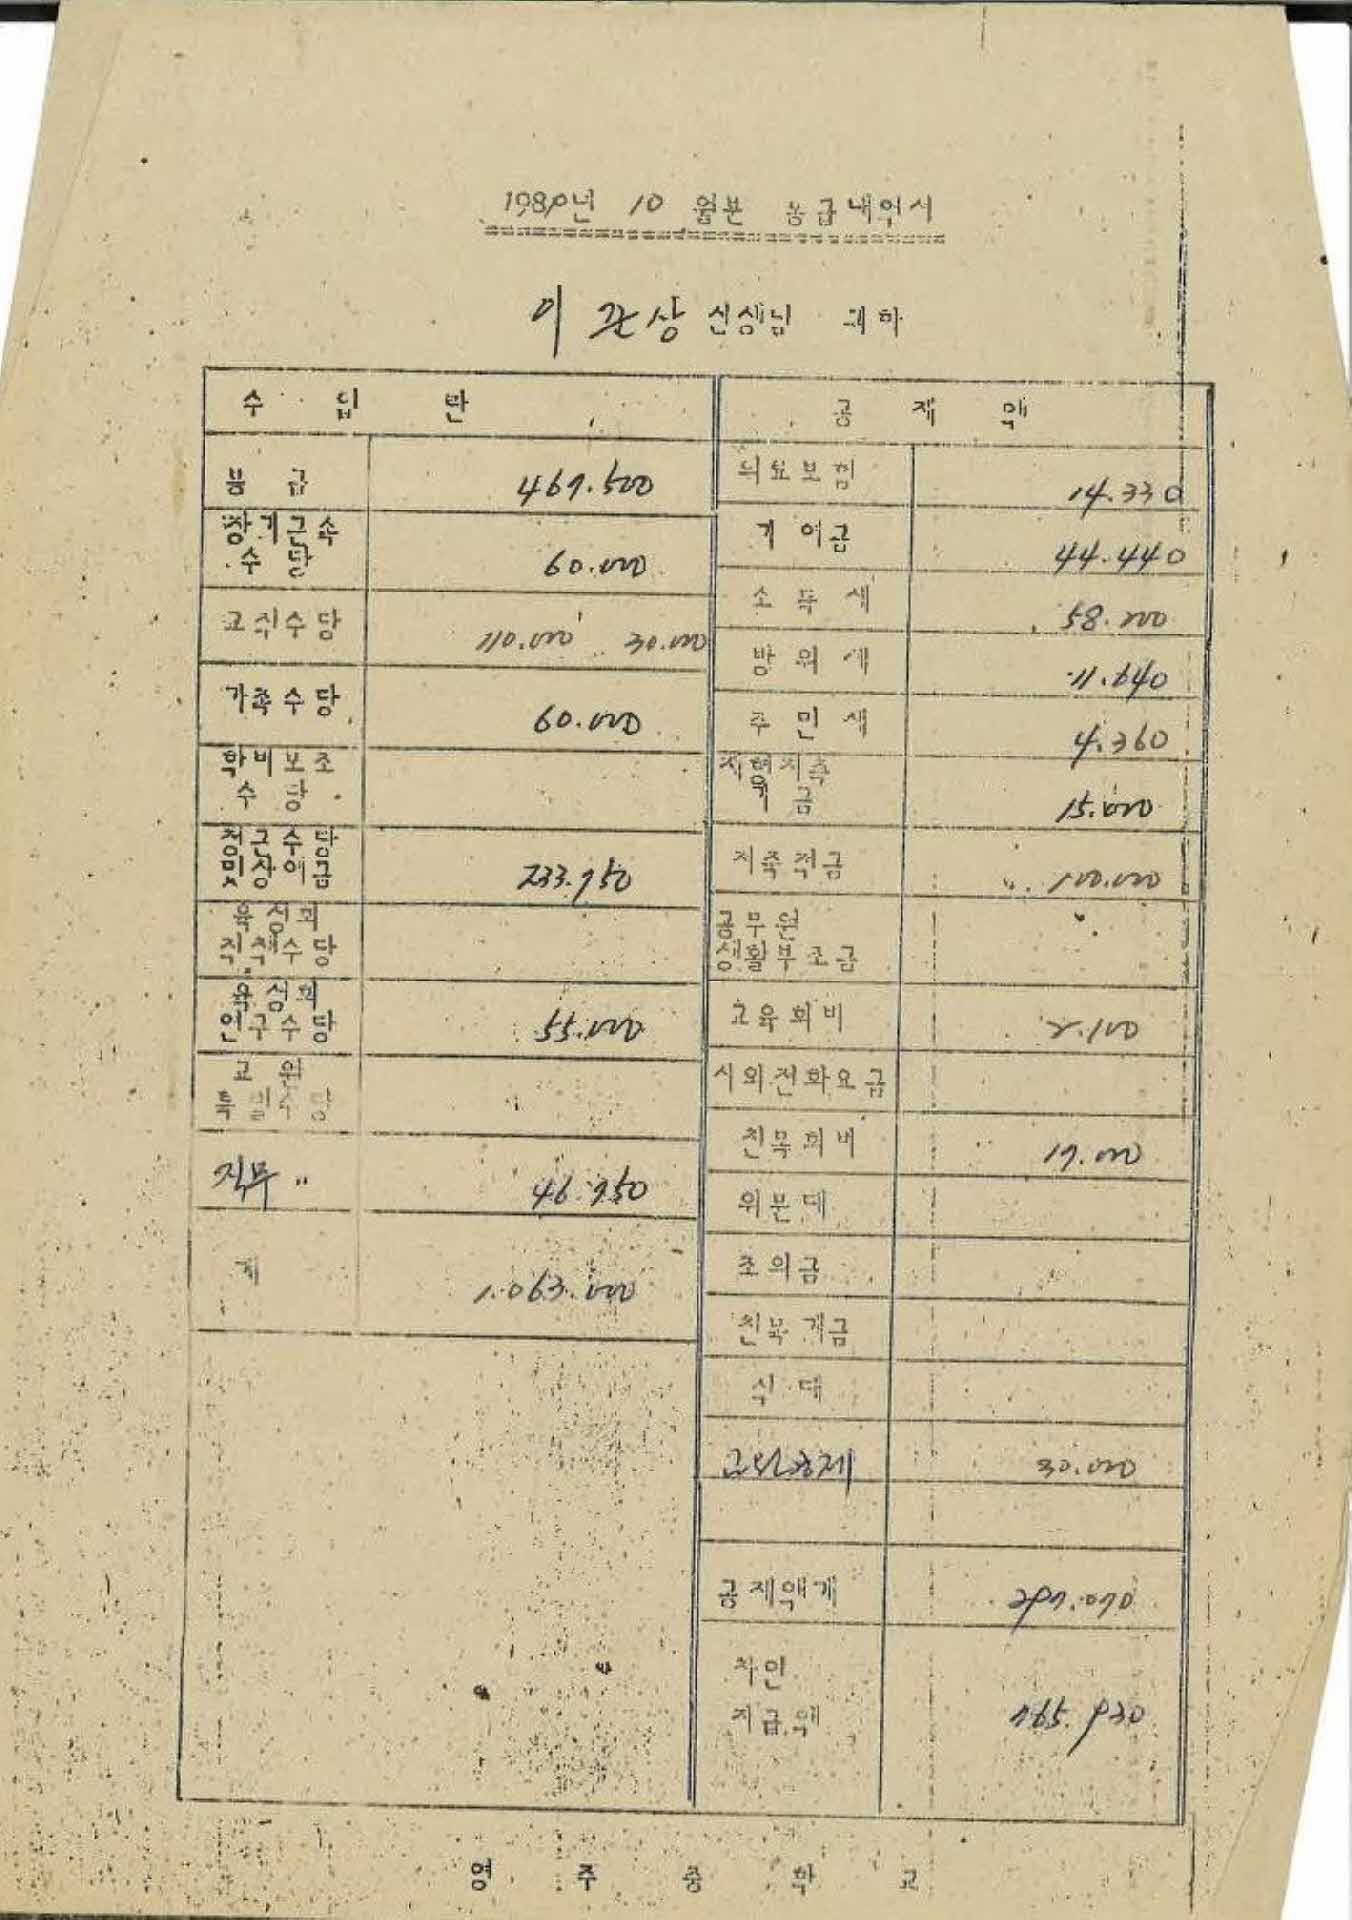 1989년 10 월분 봉급내역서
이 관상 선생님 귀하
수 입 란 공 제 액
봉 급 467.500 의료보험 14.330
장기근속 수 당 60.000 기 여 금 44.440
교직수당 110.000 30.000 소 득 세 58.200
방 위 세 11.640
가족수당 60.000 주 민 세 4.360
학비보조 수 당 기 금 15.000
정근수당 및상여금 233.750 저축적금 100.000
육성회 직책수당 공무원 생활부조금
육성회 연구수당 55.000 교육회비 2.100
교 원 특별수당 시외전화요금
직무 " 46.750 친목회비 17.000
위문대
계 1.063.000 조의금
친목계금
식 대
공제 30.000
공제액계 297.070
차인 지급액 765.930
영 주 중 학 교